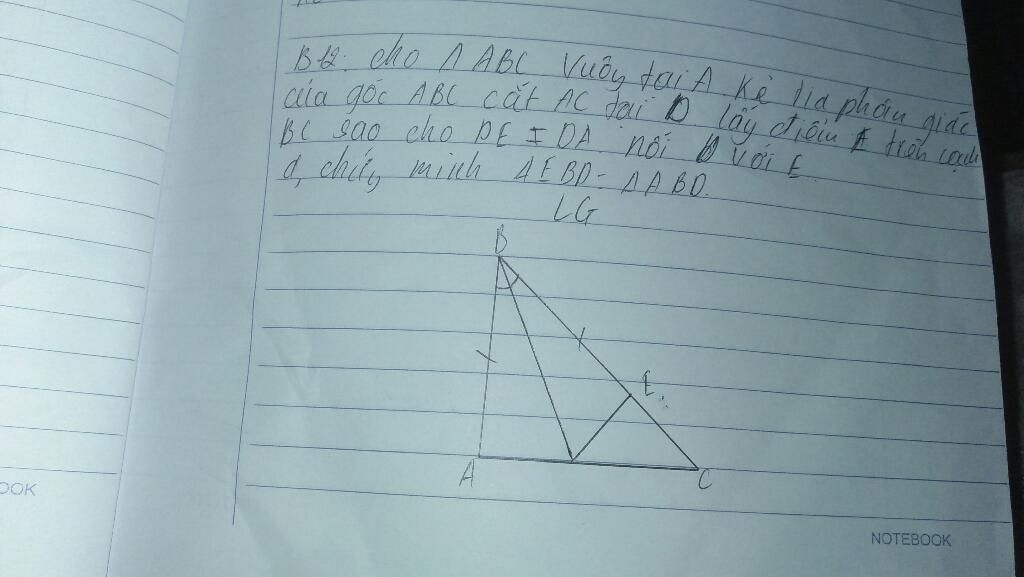 B12: cho Δ ABC vuông tại A kẻ tia phân giác
của góc ABC cắt AC tại D lấy điểm E trên cạnh
BC sao cho DE = DA nối D với E.
a, chứng minh ΔEBD = ΔABD.
LG
B
E
A
C
OOK
NOTEBOOK